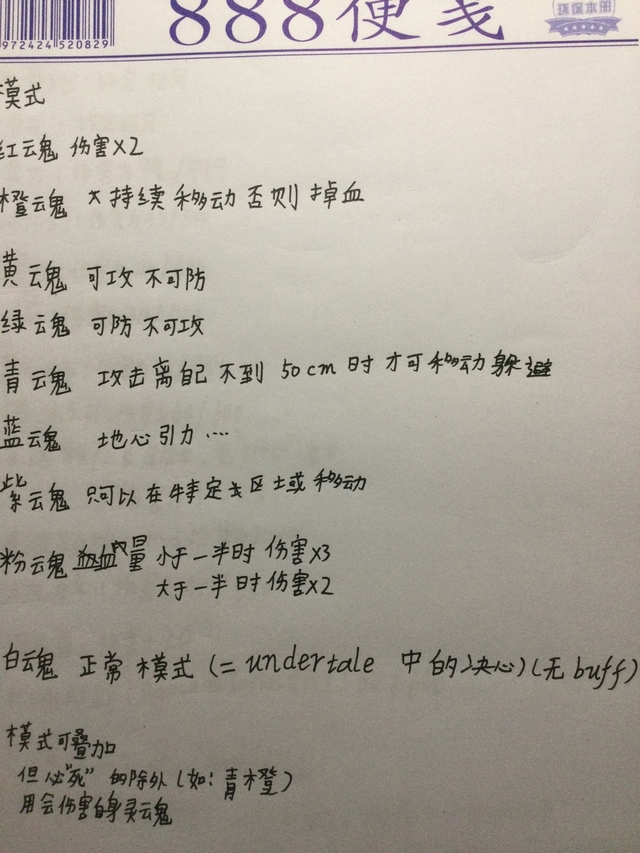 888便笺
环保本册
972424 520829
模式
红云魂 伤害×2
橙云魂 持续移动否则掉血
黄云魂 可攻不可防
绿云魂 可防不可攻
青云魂 攻击离自己不到50cm时才可移动躲避
蓝云魂 地心引力…
紫云魂 只可以在特定区域移动
粉云魂 血量小于一半时伤害×3
大于一半时伤害×2
白云魂 正常模式(=undertale中的决心)(无buff)
模式可叠加
但必"死"的除外(如:青橙)
用会伤害自身灵云魂